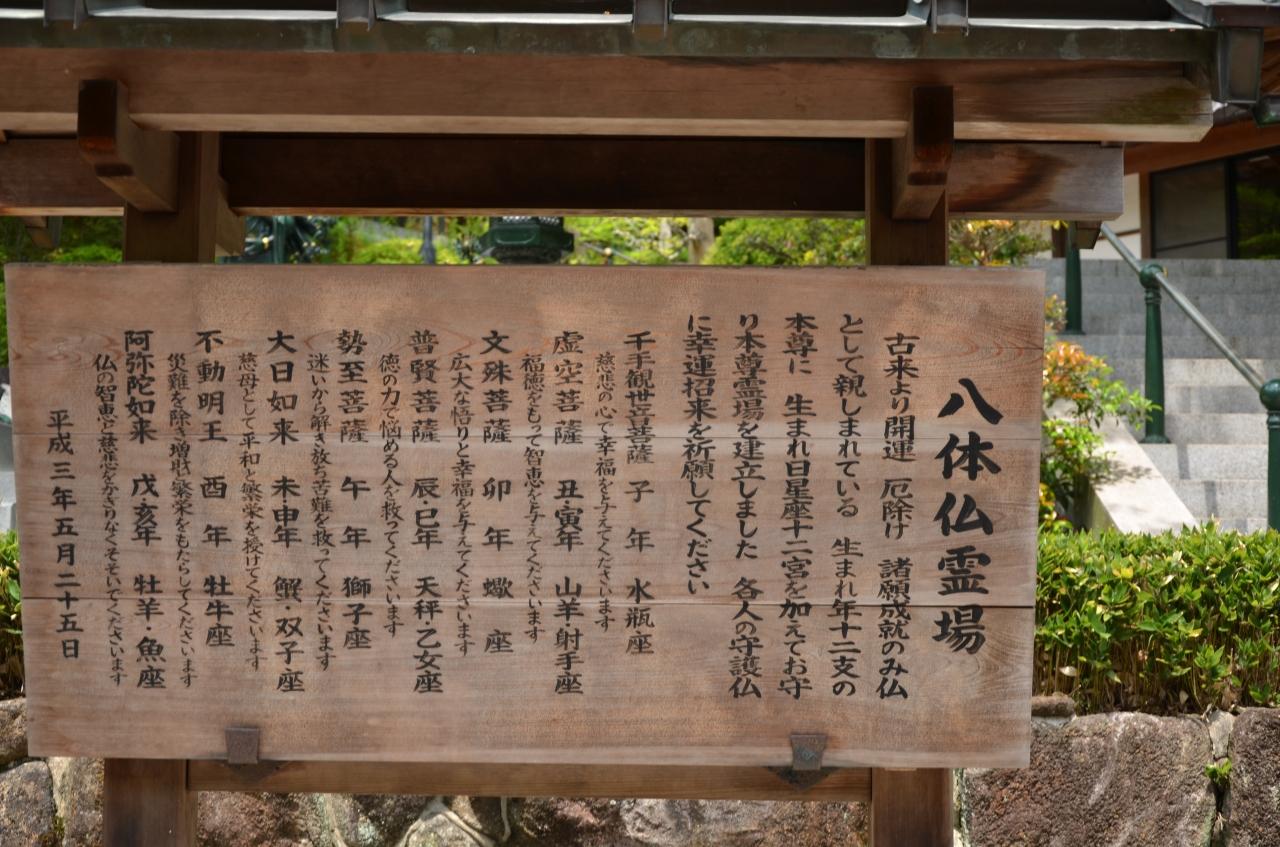 八体仏霊場
古来より開運 厄除け 諸願成就のみ仏
として親しまれている 生まれ年十二支の
本尊に 生まれ日星座十二宮を加えてお守
り本尊霊場を建立しました 各人の守護仏
に幸運招来を祈願してください
千手観世音菩薩 子年 水瓶座
慈悲の心で幸福を与えてくださいます
虚空菩薩 丑寅年 山羊射手座
福徳をもって智恵を与えてくださいます
文殊菩薩 卯年 蠍座
広大な悟りと幸福を与えてくださいます
普賢菩薩 辰・巳年 天秤・乙女座
徳の力で悩める人を救ってくださいます
勢至菩薩 午年 獅子座
迷いから解き放ち苦難を救ってくださいます
大日如来 未申年 蟹・双子座
慈母として平和と繁栄を授けてくださいます
不動明王 酉年 牡牛座
災難を除き増財繁栄をもたらしてくださいます
阿弥陀如来 戌亥年 牡羊・魚座
仏の智恵と慈悲をかぎりなくそそいでくださいます
平成三年五月二十五日